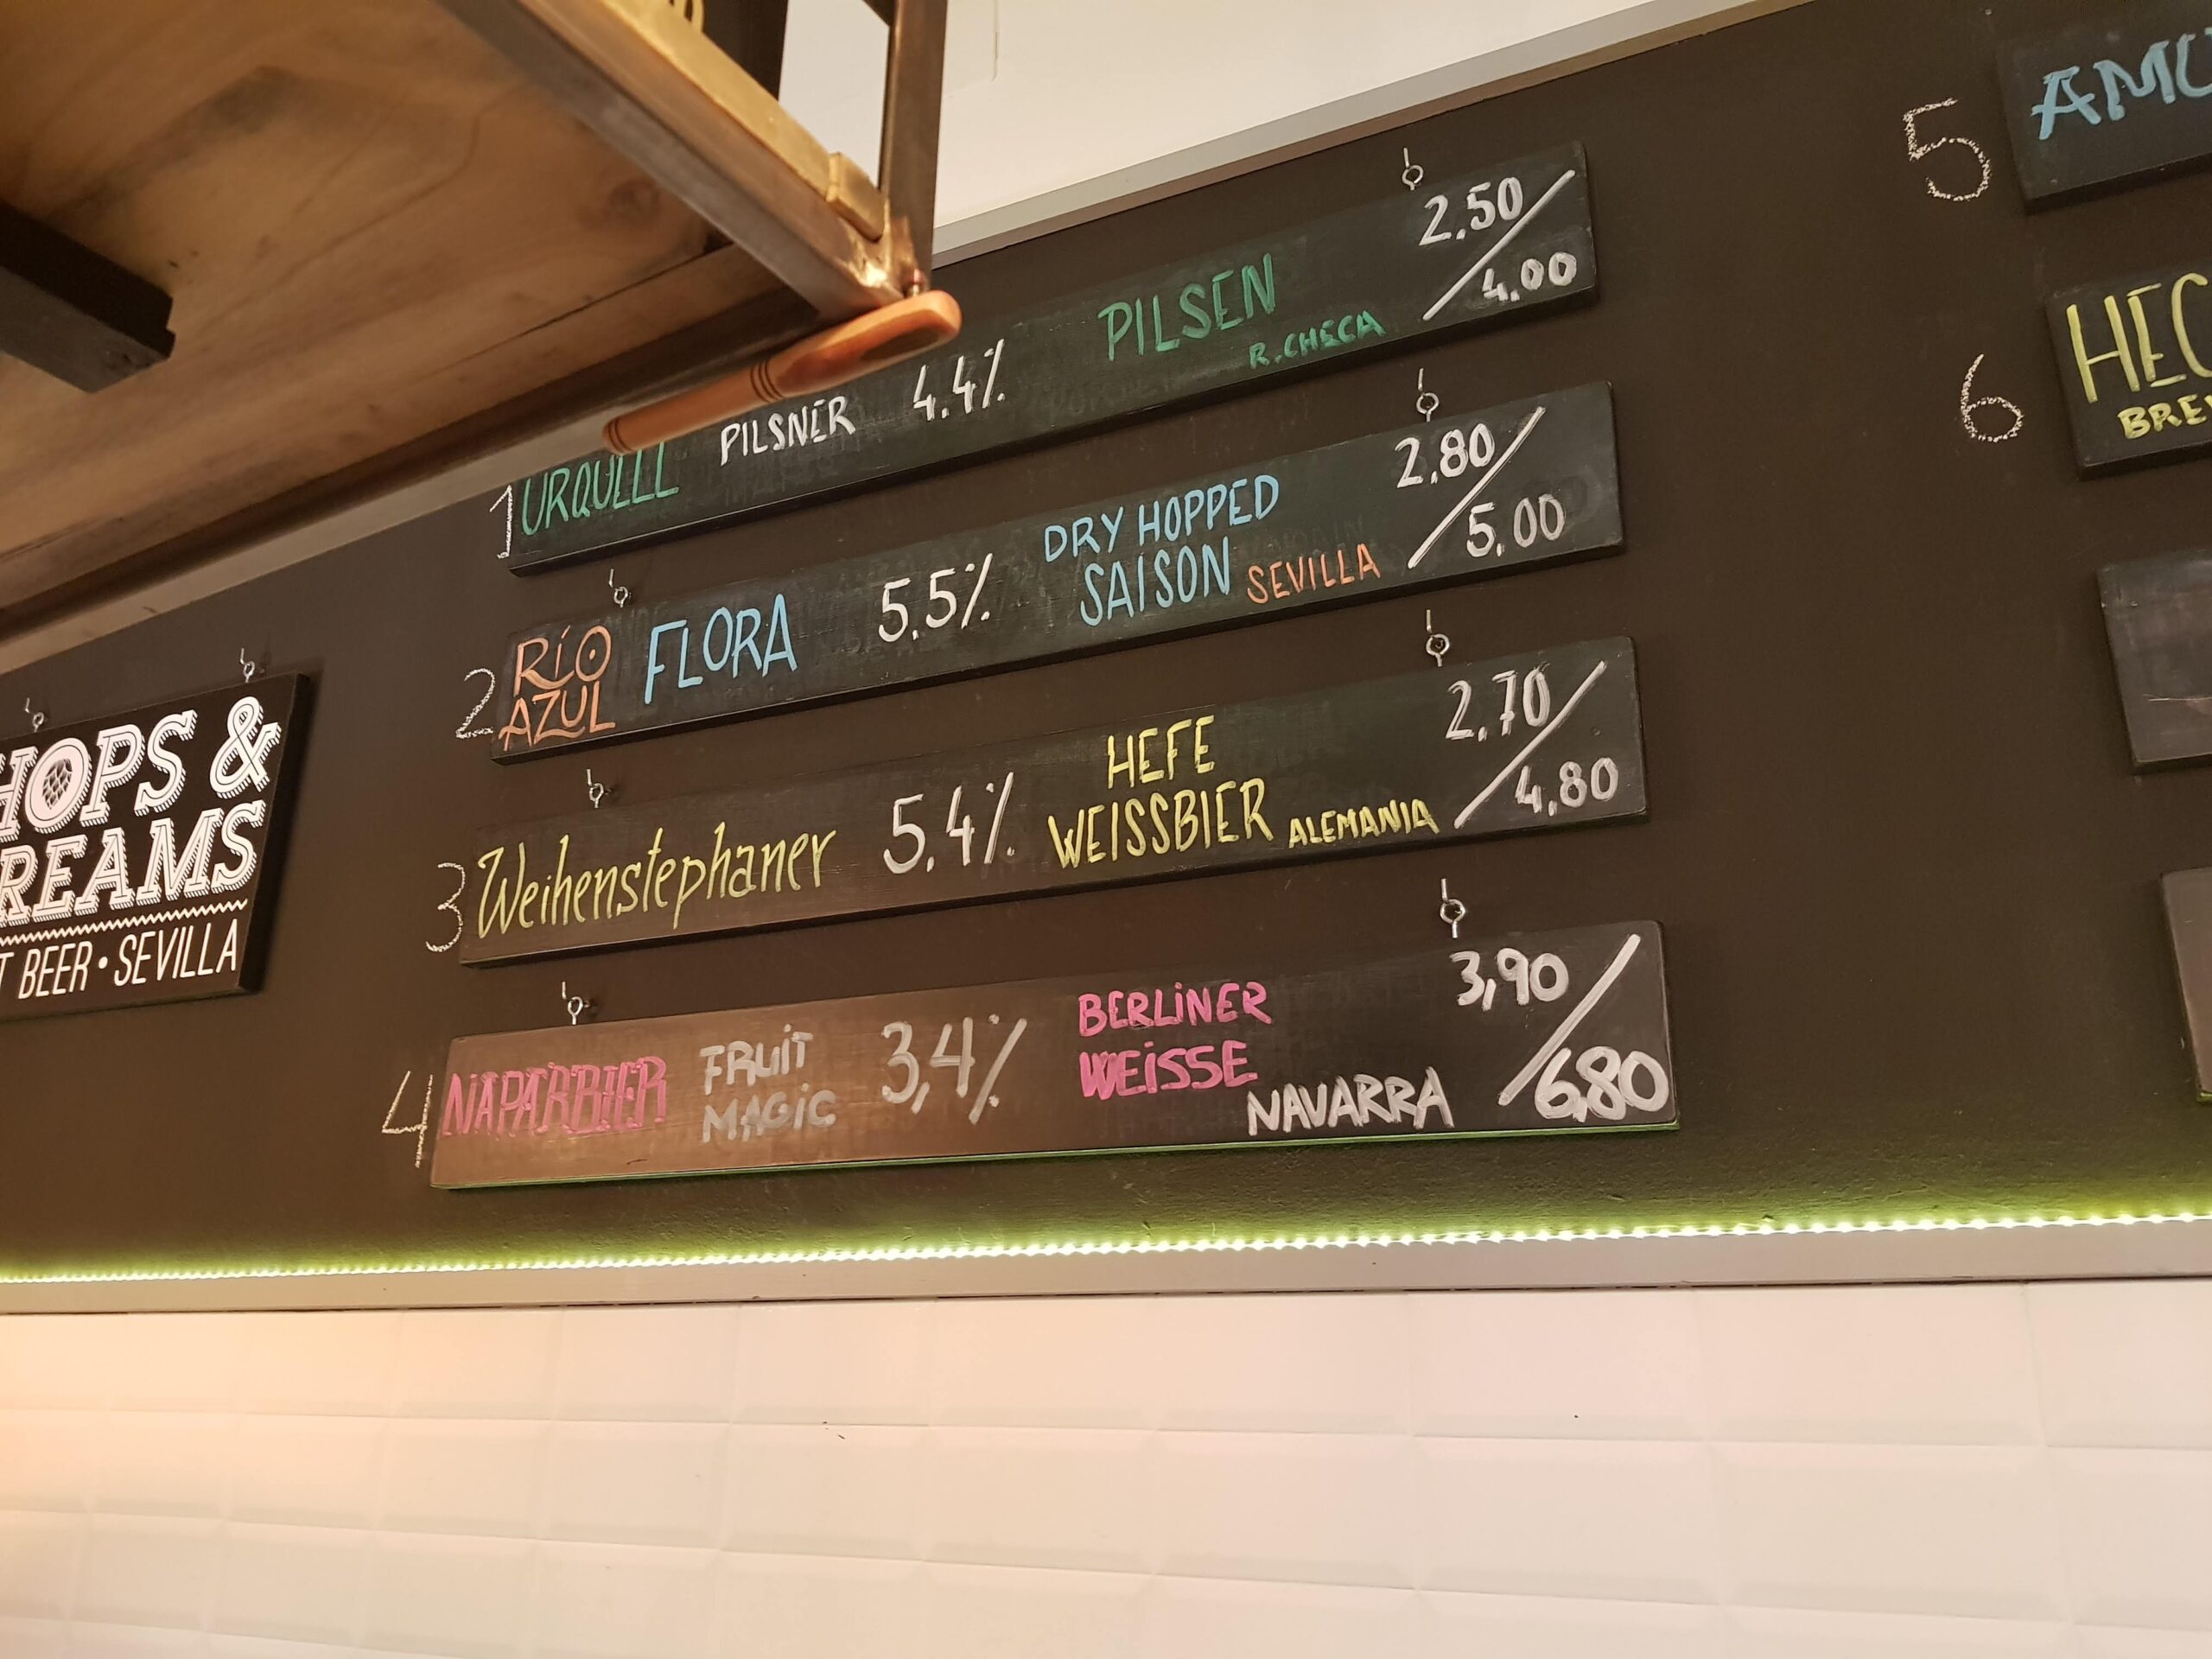 HOPS &
REAMS
T BEER • SEVILLA
1 URQUELL PILSNER 4.4% PILSEN R.CHECA 2.50/4.00
2 RÍO AZUL FLORA 5.5% DRY HOPPED SAISON SEVILLA 2.80/5.00
3 Weihenstephaner 5.4% HEFE WEISSBIER ALEMANIA 2.70/4.80
4 NAPARBIER FRUIT MAGIC 3,4% BERLINER WEISSE NAVARRA 3,90/6,80
5 AMU
6 HEC
BREW